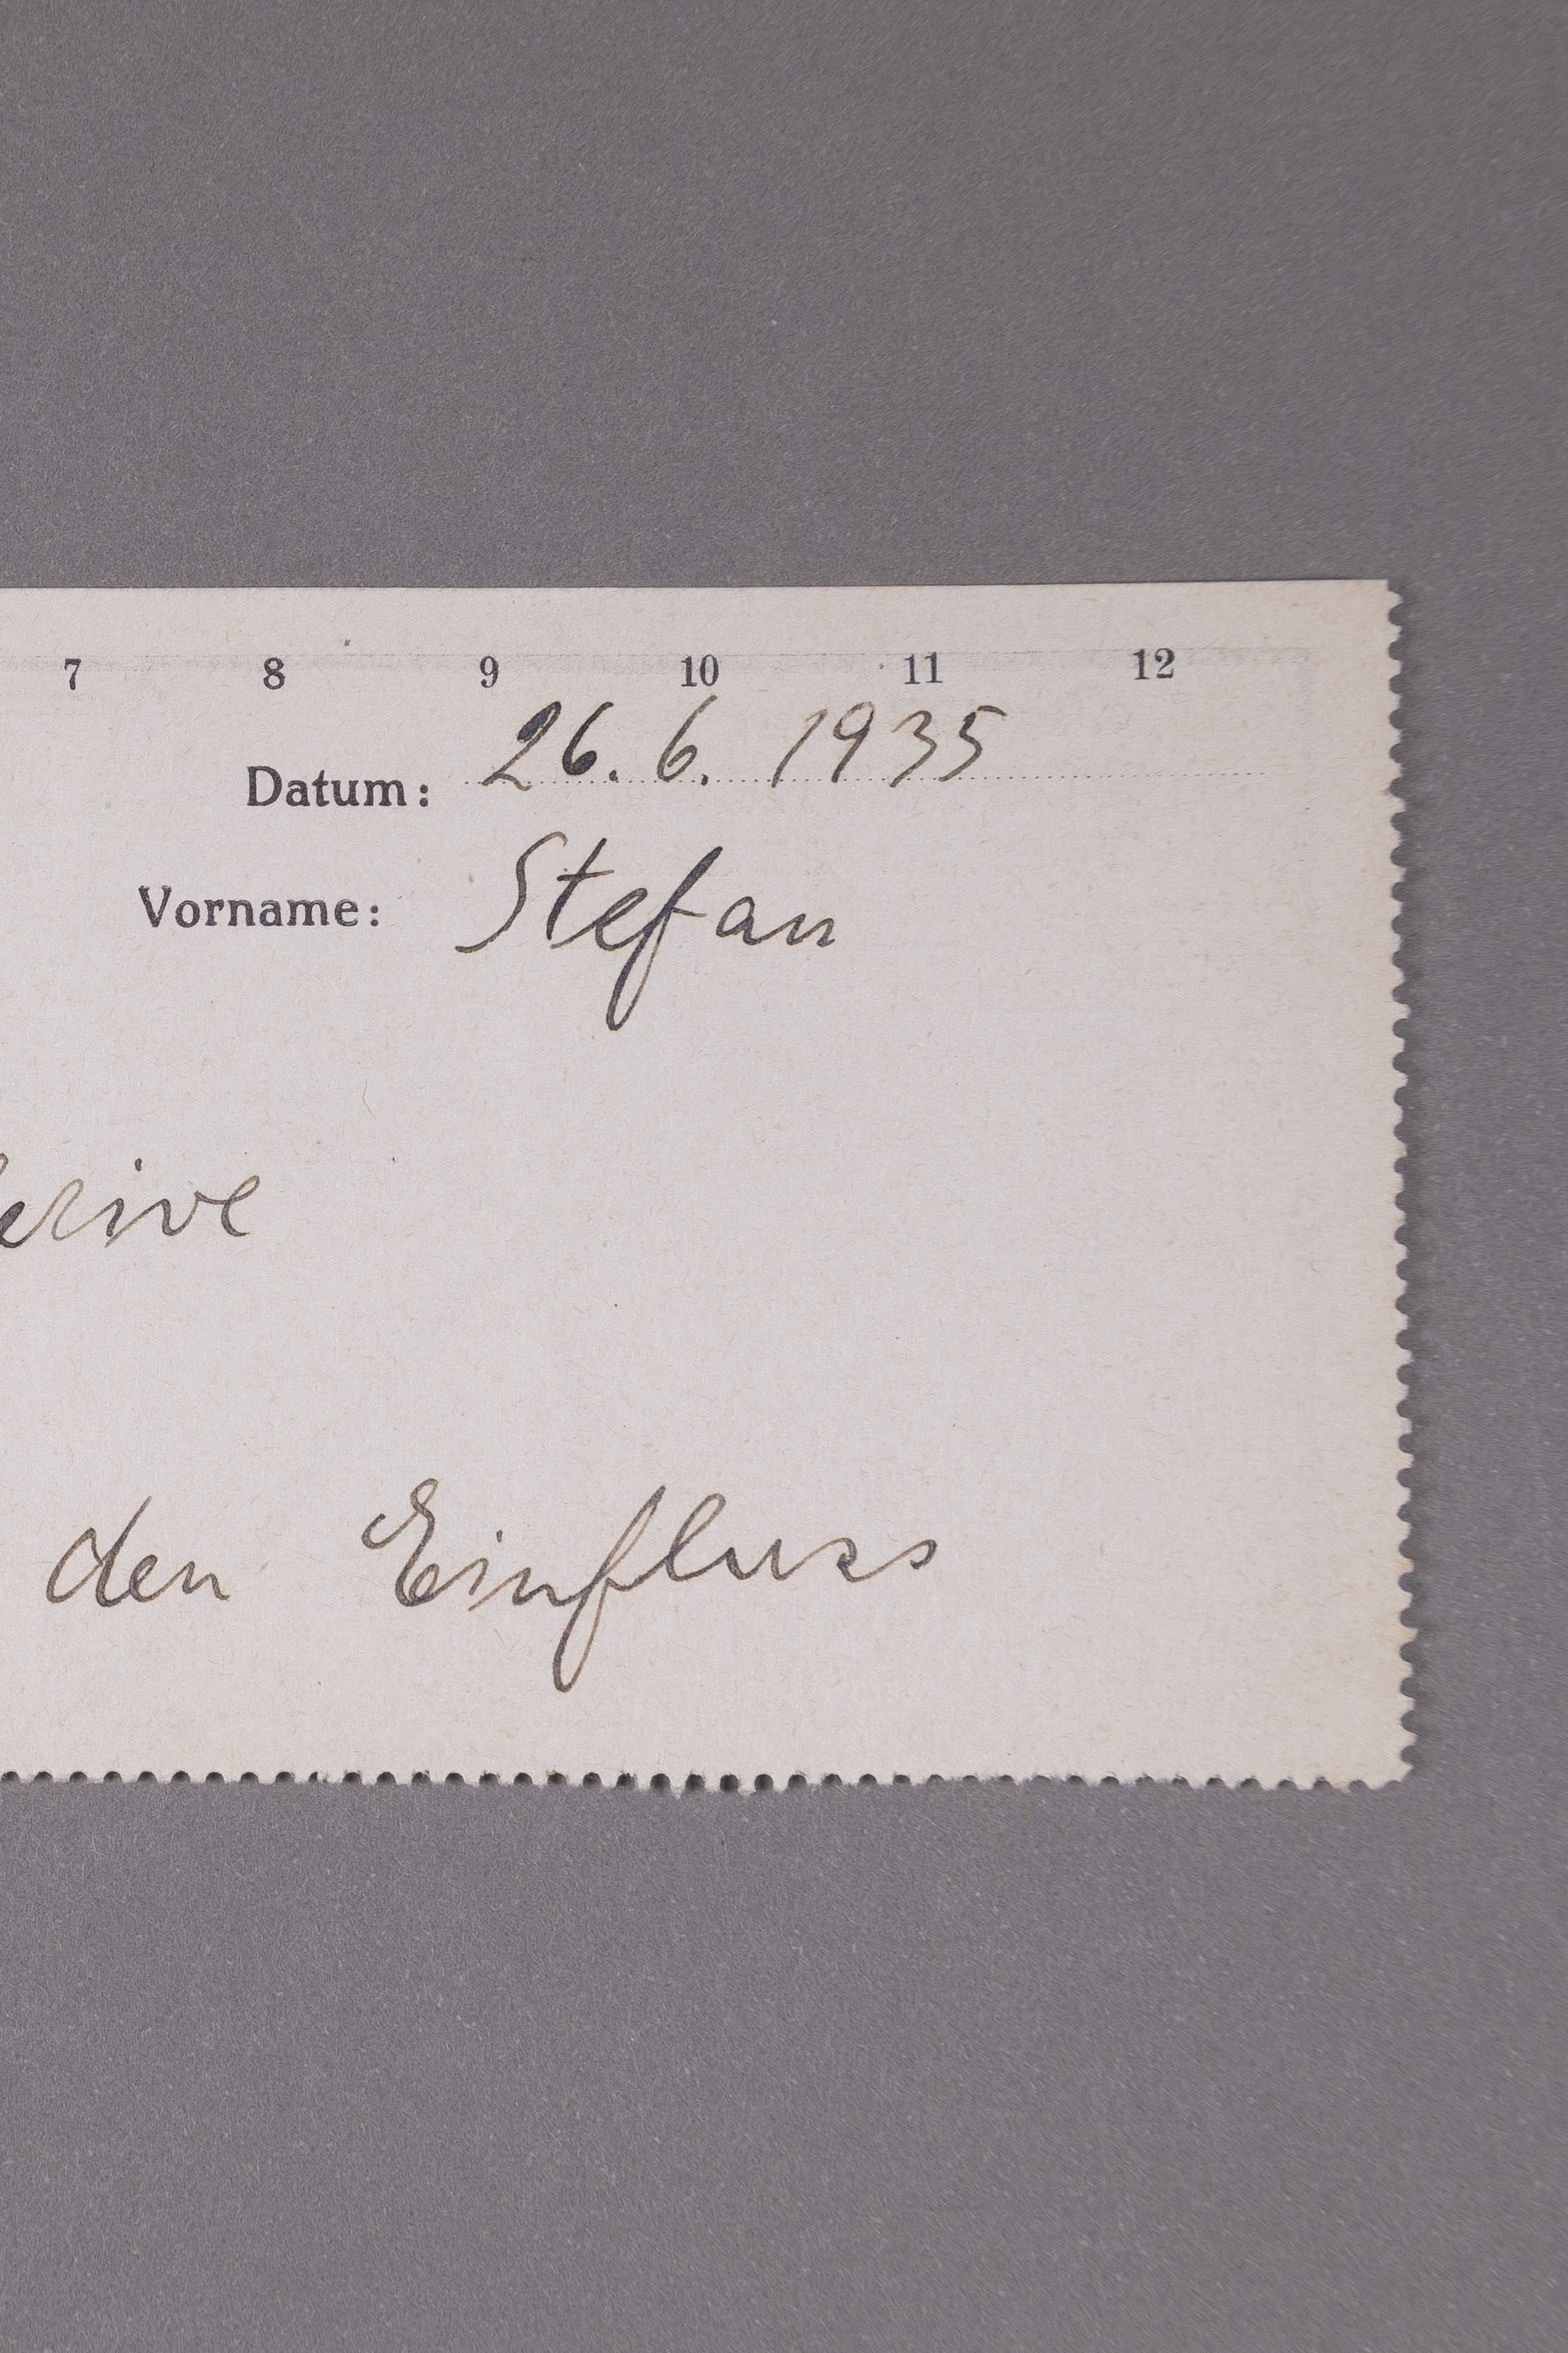 7 8 9 10 11 12
Datum: 26. 6. 1935
Vorname: Stefan
den Einfluss